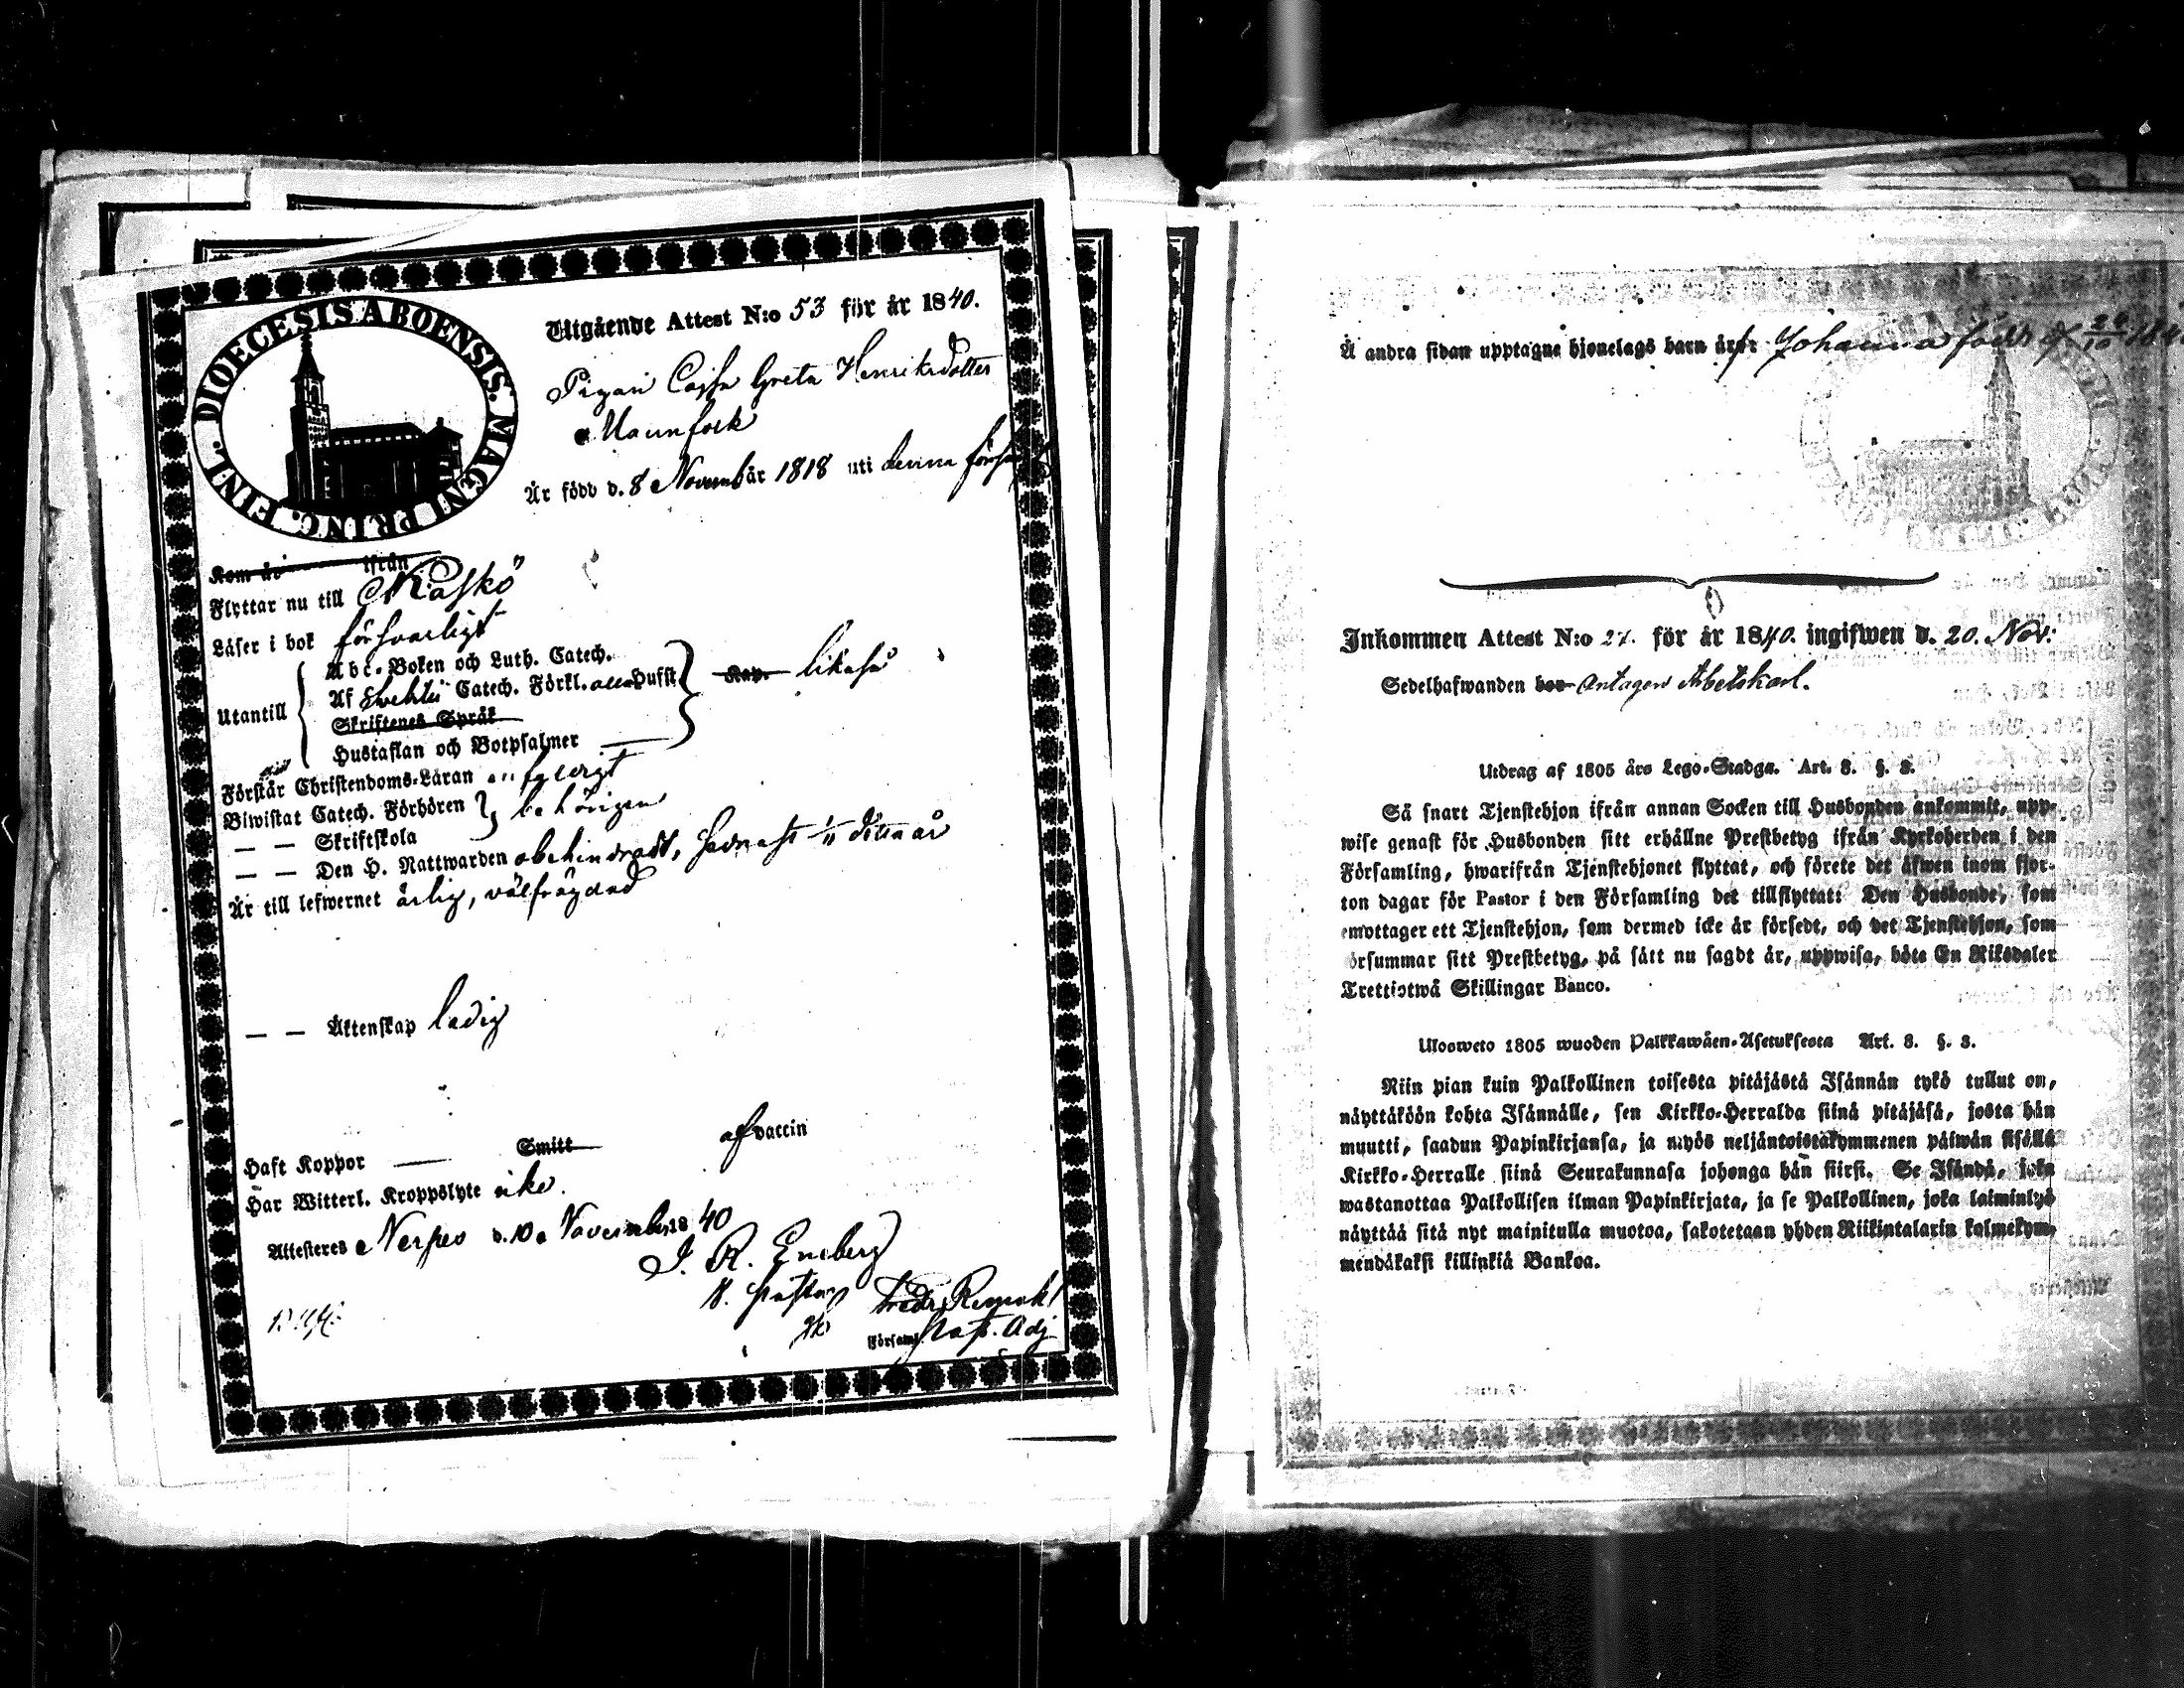 DIOECESIS ABOENSIS. MAGNI PRINC. FINL.
Utgående Attest N:o 53 för år 1840.
Pigan Cajsa Greta Henriksdotter
Är född d. 8 Novemb år 1818 uti denna förs
Kom år ifrån
Flyttar nu till Kaskö
Läser i bok försvarligt
Utantill
Abc-Boken och Luth. Catech.
Af Svebelii Catech. Förkl. allen Hufst
Kap. likaså
Skriftenes Språk
Hustaflan och Botpsalmer
Förstår Christendoms-Läran
Biwistat Catech. Förhören
behörigen
— — Skriftskola
— — Den H. Nattwarden obehindradt, sednast 1/11 detta år
Är till lefwernet ärlig, välfrägdad
— — Äktenskap ledig
Haft Koppor — Smitt af vaccin
Har Witterl. Kroppslyte icke.
Attesteres Nerpes d. 10 November 1840
J. R. Eneberg
V. Pastor
Församl. Past. Adj.
Å andra sidan upptagne hjonelags barn äro: Johanna född d 24/10 184
Inkommen Attest N:o 27. för år 1840. ingifwen d. 20. Nov:
Sedelhafwanden bor antagen Arbetskarl.
Utdrag af 1805 års Lego-Stadga. Art. 8. §. 3.
Så snart Tjenstehjon ifrån annan Socken till Husbonden ankommit, upp-
wise genast för Husbonden sitt erhållne Prestbetyg ifrån Kyrkoherden i den
Församling, hwarifrån Tjenstehjonet flyttat, och förete det äfwen inom fjor-
ton dagar för Pastor i den Församling det tillflyttat: Den Husbonde, som
emottager ett Tjenstehjon, som dermed icke är försedt, och det Tjenstehjon, som
örsummar sitt Prestbetyg, på sätt nu sagdt är, uppwisa, böte En Riksdaler
Trettiotwå Skillingar Banco.
Uloosweto 1805 wuoden Palkkawäen-Asetuksesta Art. 8. §. 3.
Niin pian kuin Palkollinen toisesta pitäjästä Isännän tykö tullut on,
näyttäköön kohta Isännälle, sen Kirkko-Herralda siinä pitäjäsä, josta hän
muutti, saadun Papinkirjansa, ja myös neljäntoistakymmenen päiwän sisällä
Kirkko-Herralle siinä Seurakunnasa johonga hän siirsi. Se Isändä, joka
wastanottaa Palkollisen ilman Papinkirjata, ja se Palkollinen, joka laiminlyö
näyttää sitä nyt mainitulla muotoa, sakotetaan yhden Riikintalarin kolmekym-
mendäkaksi killinkiä Bankoa.